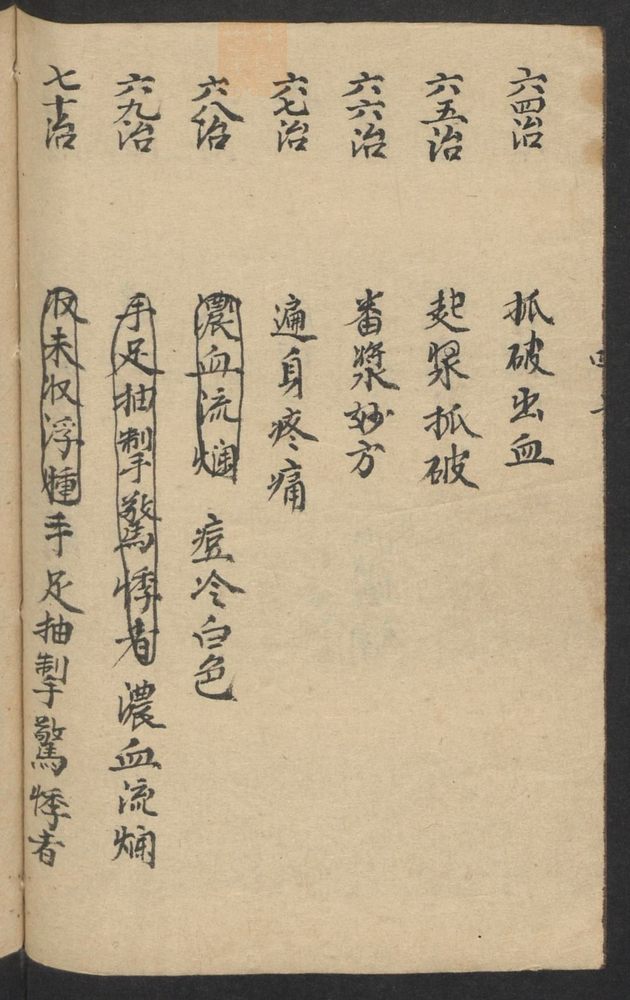 六四治 抓破出血
六五治 起漿抓破
六六治 番漿妙方
六七治 遍身疼痛
六八治 濃血流爛 痘冷白色
六九治 手足抽掣驚悸者 濃血流爛
七十治 収未収浮腫 手足抽掣驚悸者